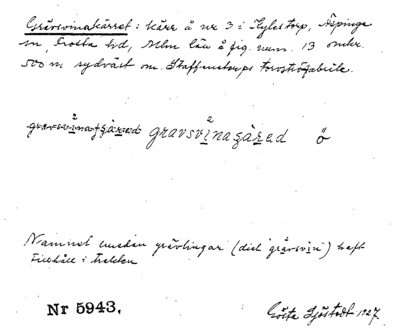 Grävsvinakärret: kärr å nr 3 i Hylestorp, Äspinge
sn, Frosta hd, Mlm län å fig. num. 13 omkr.
500 m sydväst om Staffanstorps Torvströfabrik.
gravsvinagärad gravsvinagärad ö
Namnet emedan grävlingar (dial. gråvsvin) haft
tillhåll i trakten
Nr 5943.
Gösta Sjöstedt 1927